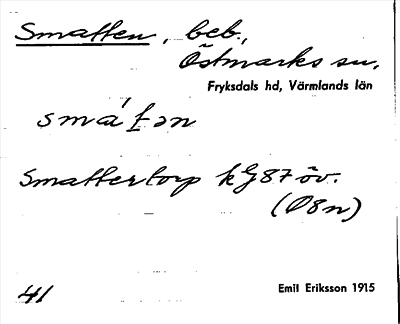 Smatten, beb.,
Östmarks sn,
Fryksdals hd, Värmlands län
smát̠ən
Smattertorp kG87öv.
(Ø8n)
41 Emil Eriksson 1915